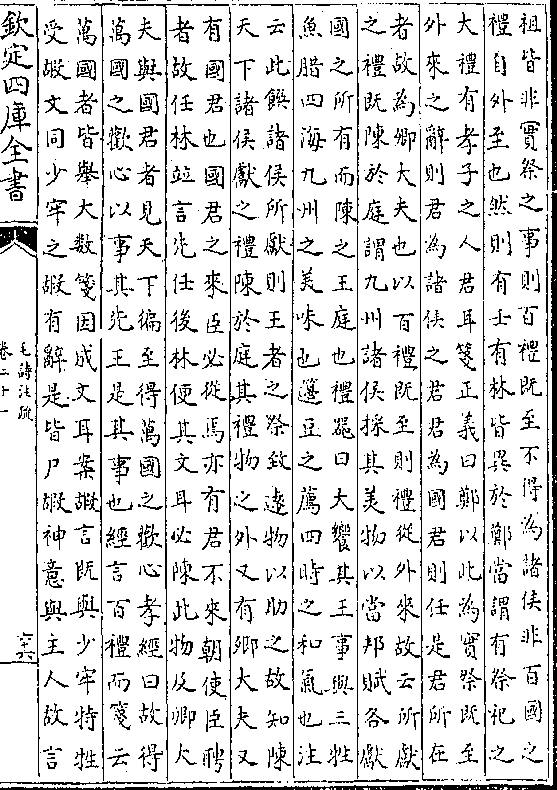 祖皆非實祭之事則百禮既至不得為諸侯非百國之
禮自外至也然則有壬有林皆異於鄭當謂有祭祀之
大禮有孝子之人君耳箋正義曰鄭以此為實祭既至
外來之辭則君為諸侯之君君為國君則任是君所在
者故為卿大夫也以百禮既至則禮從外來故云所獻
之禮既陳於庭謂九州諸侯採其美物以當邦賦各獻
國之所有而陳之王庭也禮器曰大饗其王事與三牲
魚腊四海九州之美味也籩豆之薦四時之和氣也注
云此饌諸侯所獻則王者之祭致遠物以助之故知陳
天下諸侯獻之禮陳於庭其禮物之外又有卿大夫又
有國君也國君之來臣必從焉亦有君不來朝使臣聘
者故任林竝言先任後林便其文耳必陳此物及卿大
夫與國君者見天下徧至得萬國之歡心孝經曰故得
萬國之歡心以事其先王是其事也經言百禮而箋云
萬國者皆舉大數箋因成文耳案嘏言既與少牢特牲
受嘏文同少牢之嘏有辭是皆尸嘏神意與主人故言
欽定四庫全書
毛詩注疏
卷二十一